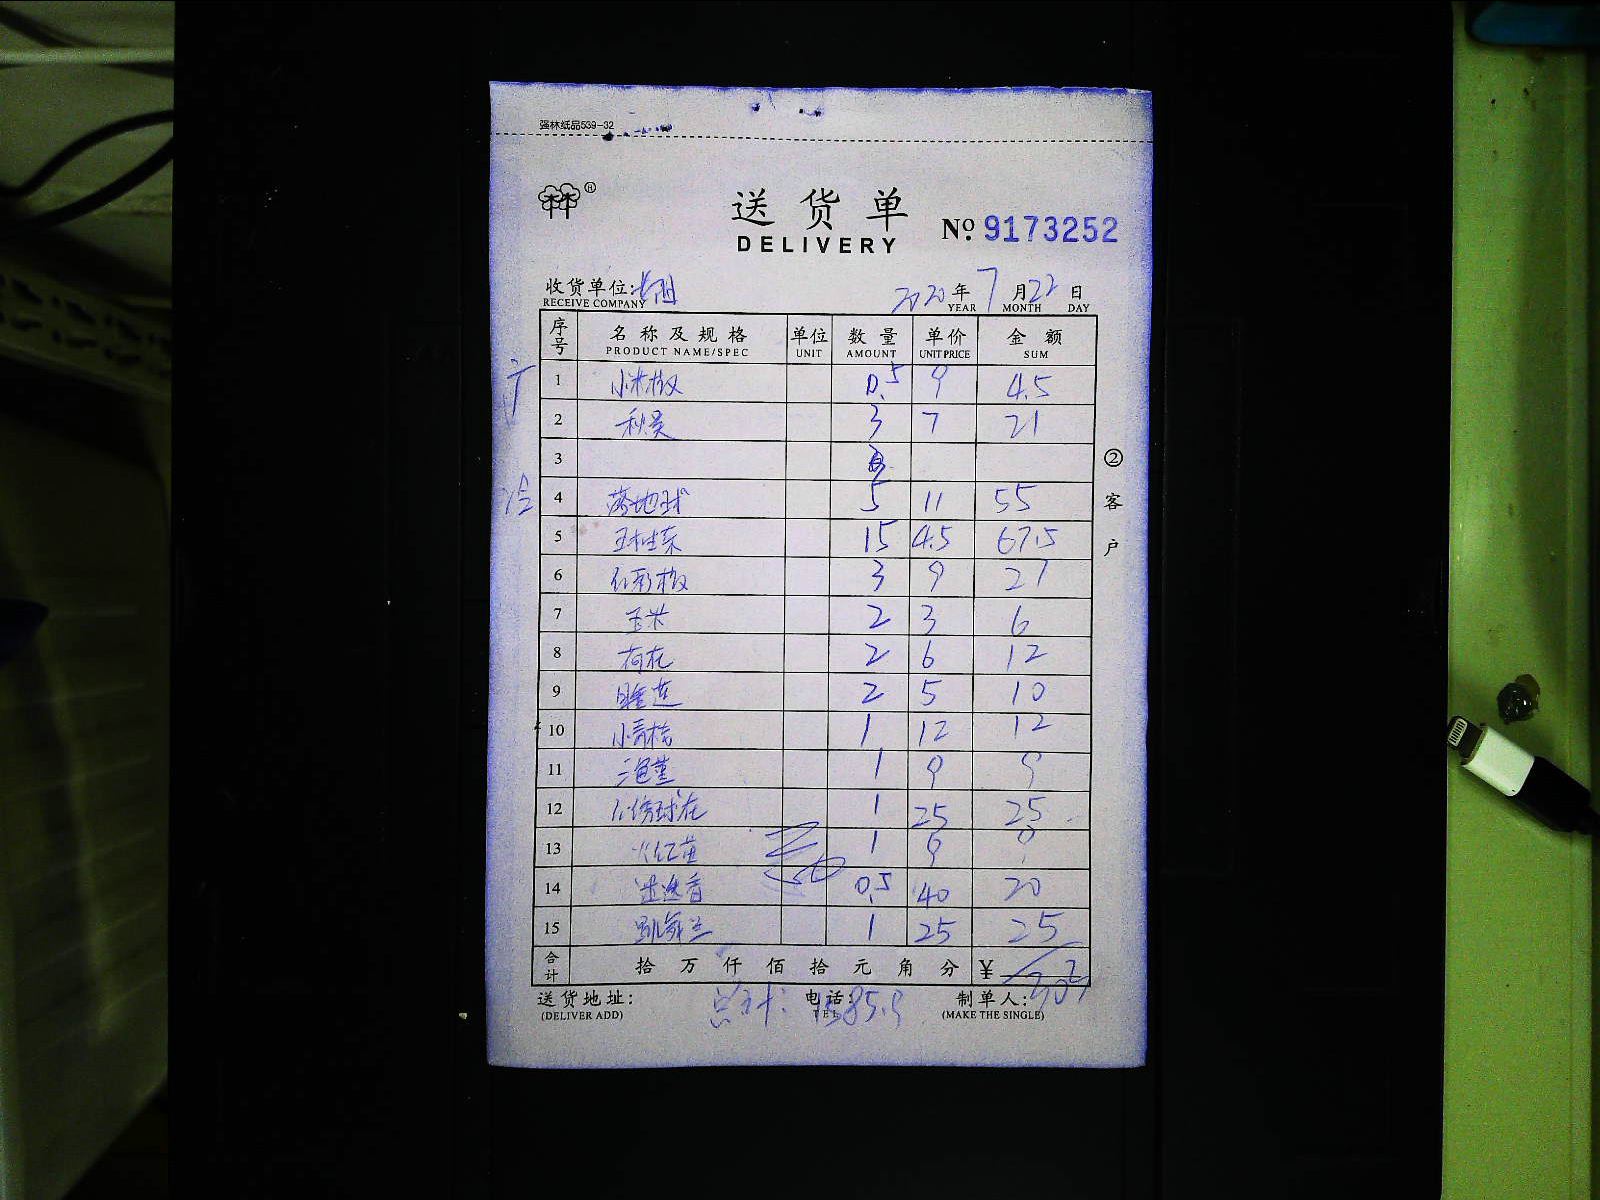 强林纸品539-32
送货单
DELIVERY
No. 9173252
收货单位:
RECEIVE COMPANY
2020年7月22日
YEAR MONTH DAY
序号 名称及规格 单位 数量 单价 金额
PRODUCT NAME/SPEC UNIT AMOUNT UNIT PRICE SUM
1 小米椒 0.5 9 4.5
2 秋葵 3 7 21
3
冷
4 落地球 5 11 55
5 15 4.5 67.5
6 红彩椒 3 9 27
7 玉米 2 3 6
8 荷花 2 6 12
9 睡莲 2 5 10
10 小青桔 1 12 12
11 三色堇 1 9 9
12 球花 1 25 25
13 火红苗 1 9 9
14 迷迭香 0.5 40 20
15 跳舞兰 1 25 25
合计 拾 万 仟 佰 拾 元 角 分 ¥
送货地址: 电话: 制单人:
(DELIVER ADD) TEL (MAKE THE SINGLE)
总计:
②客户